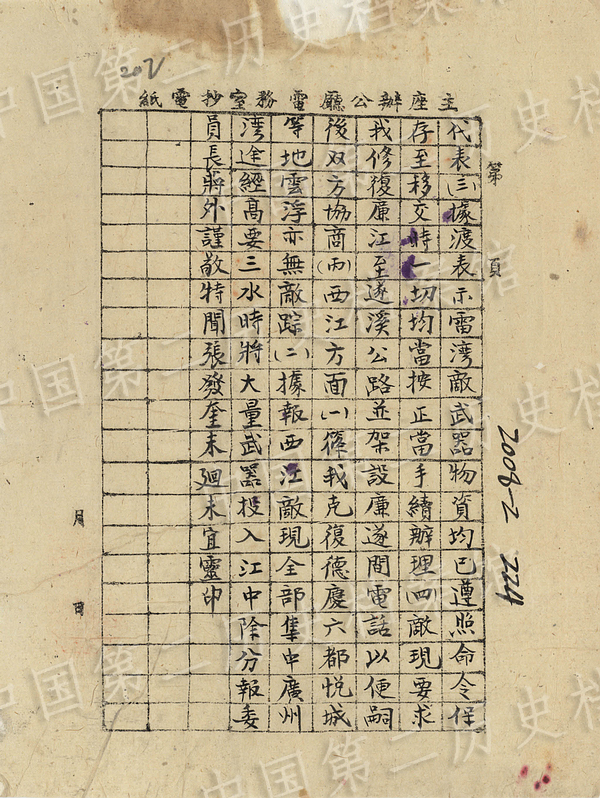 202
主座辦公廳電務室抄電紙
第 頁
代表(三)據渡表示雷湾敵武器物資均已遵照命令保
存至移交時一切均當按正當手續辦理(四)敵現要求
我修復廉江至遂溪公路並架設廉遂間電話以便嗣
後双方協商(丙)西江方面(一)我克復德慶六都悦城
等地雲浮亦無敵踪(二)據報西江敵現全部集中廣州
湾途經高要三水時將大量武器投入江中除分報委
員長蔣外謹敬特聞張發奎未迴末宜靈印
月 日
2008-2 224
中国第二历史档案馆